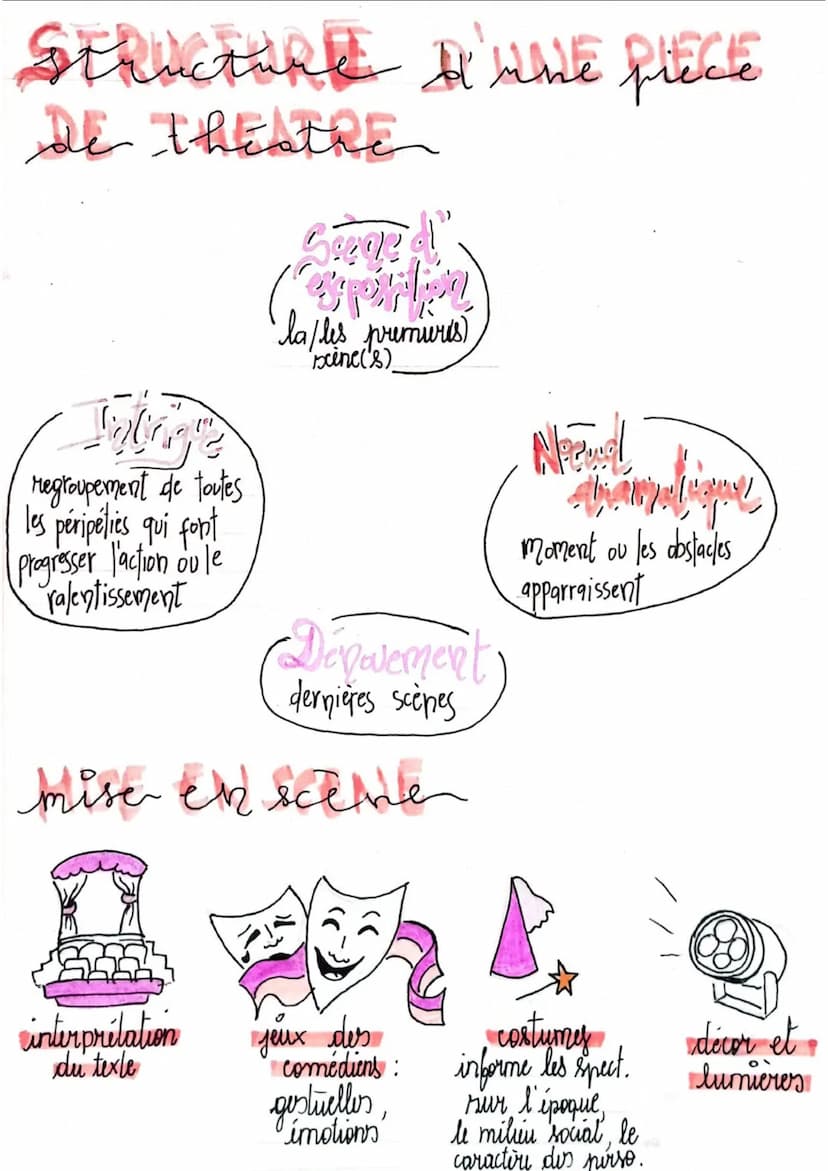 Structure d'une pièce
de théâtre
Scène d'
exposition
la/les première(s)
scène(s)
Intrigue
regroupement de toutes
les péripéties qui font
progresser l'action ou le
ralentissement
Noeud
dramatique
moment ou les obstacles
apparraissent
Dénouement
dernières scènes
mise en scène
interprétation
du texte
jeux des
comédiens :
gestuelles,
émotions
costumes
informe les spect.
sur l'époque,
le milieu social, le
caractère des perso.
décor et
lumières